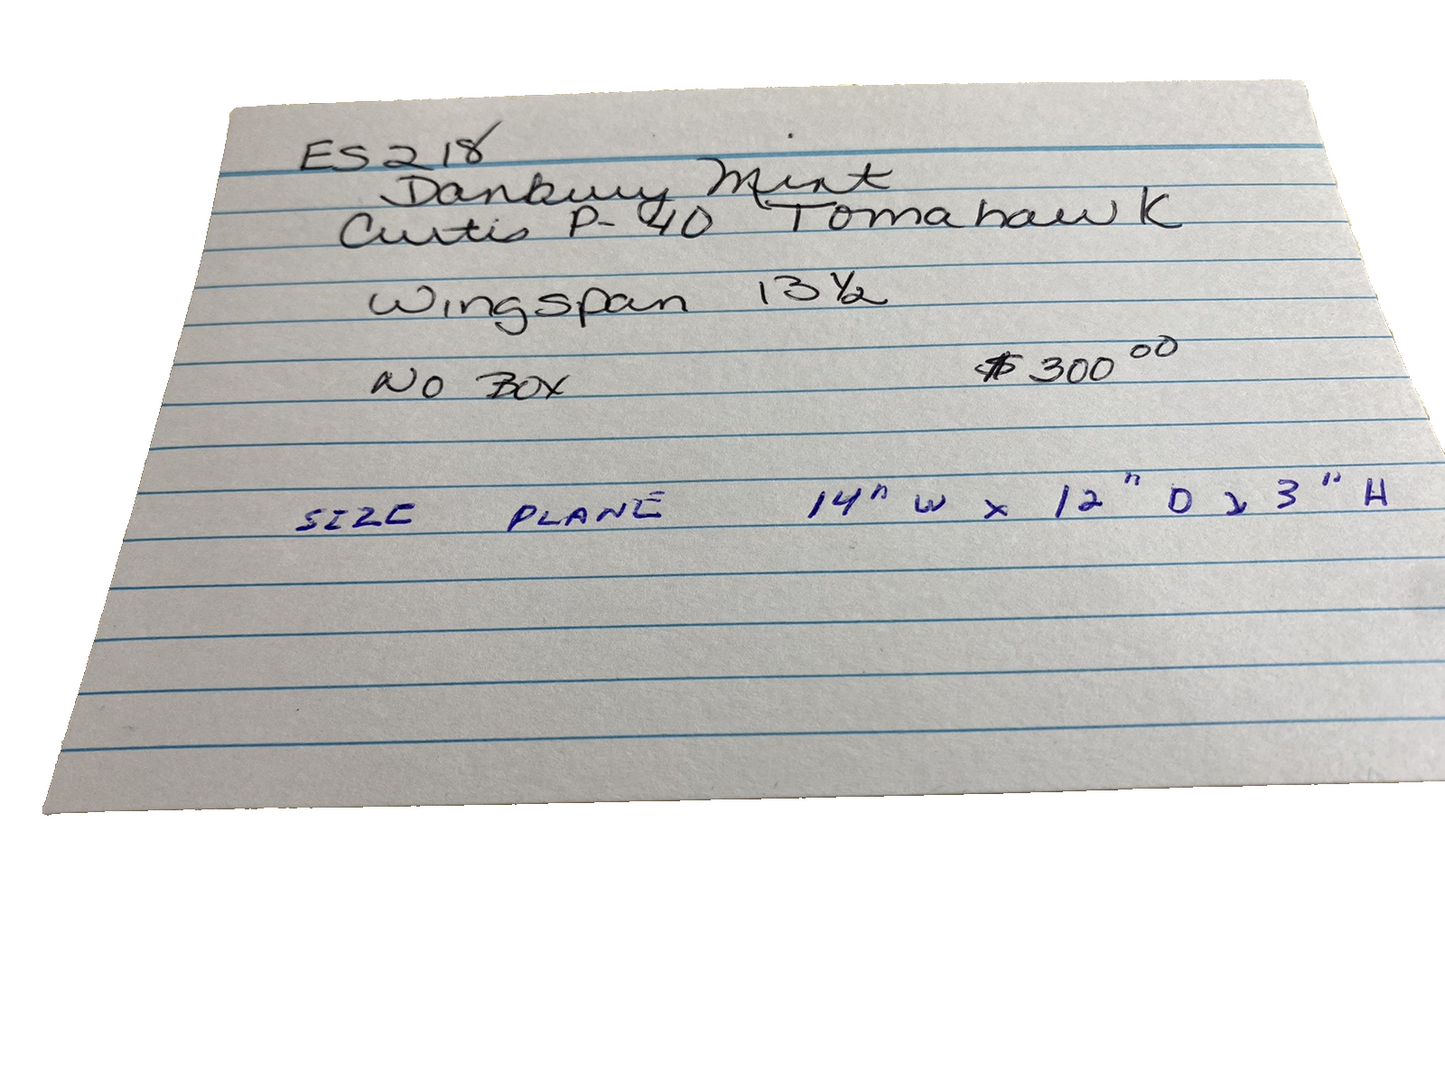 ES218
Danbury Mint
Curtis P-40 Tomahawk
Wingspan 13 1/2
No Box $300.00
SIZE PLANE 14" W x 12" D x 3" H